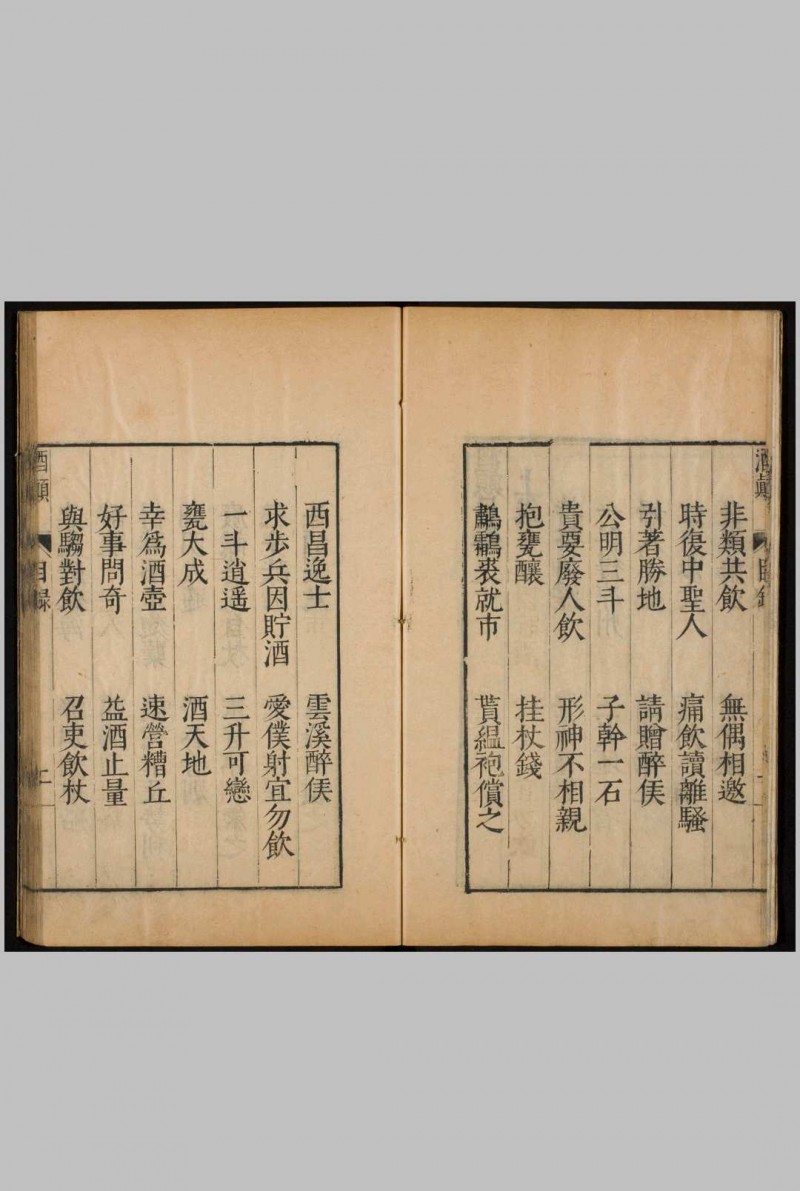 酒顛 目錄
非類共飲 無偶相邀
時復中聖人 痛飲讀離騷
引著勝地 請贈醉侯
公明三斗 子幹一石
貴要廢人飲 形神不相親
抱甕釀 挂杖錢
鷫鸘裘就市 貰緼袍償之
西昌逸士 雲溪醉侯
求步兵因貯酒 愛僕射宜勿飲
一斗逍遥 三升可戀
甕大成 酒天地
幸爲酒壺 速營糟丘
好事問奇 益酒止量
與騶對飲 召吏飲杖
酒顛 目錄